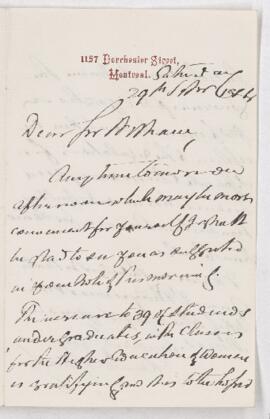 1157 Dorchester Street,
Montreal. Saturday
29th Novr 1884
Dear Sir William
Any time tomorrow
afternoon which may be most
convenient for yourself I shall
be glad to see you as suggested
in your note of this morning.
The increase to 39 of students
undergraduates, in the Classes
for the Higher Education of Women
is gratifying and this to the